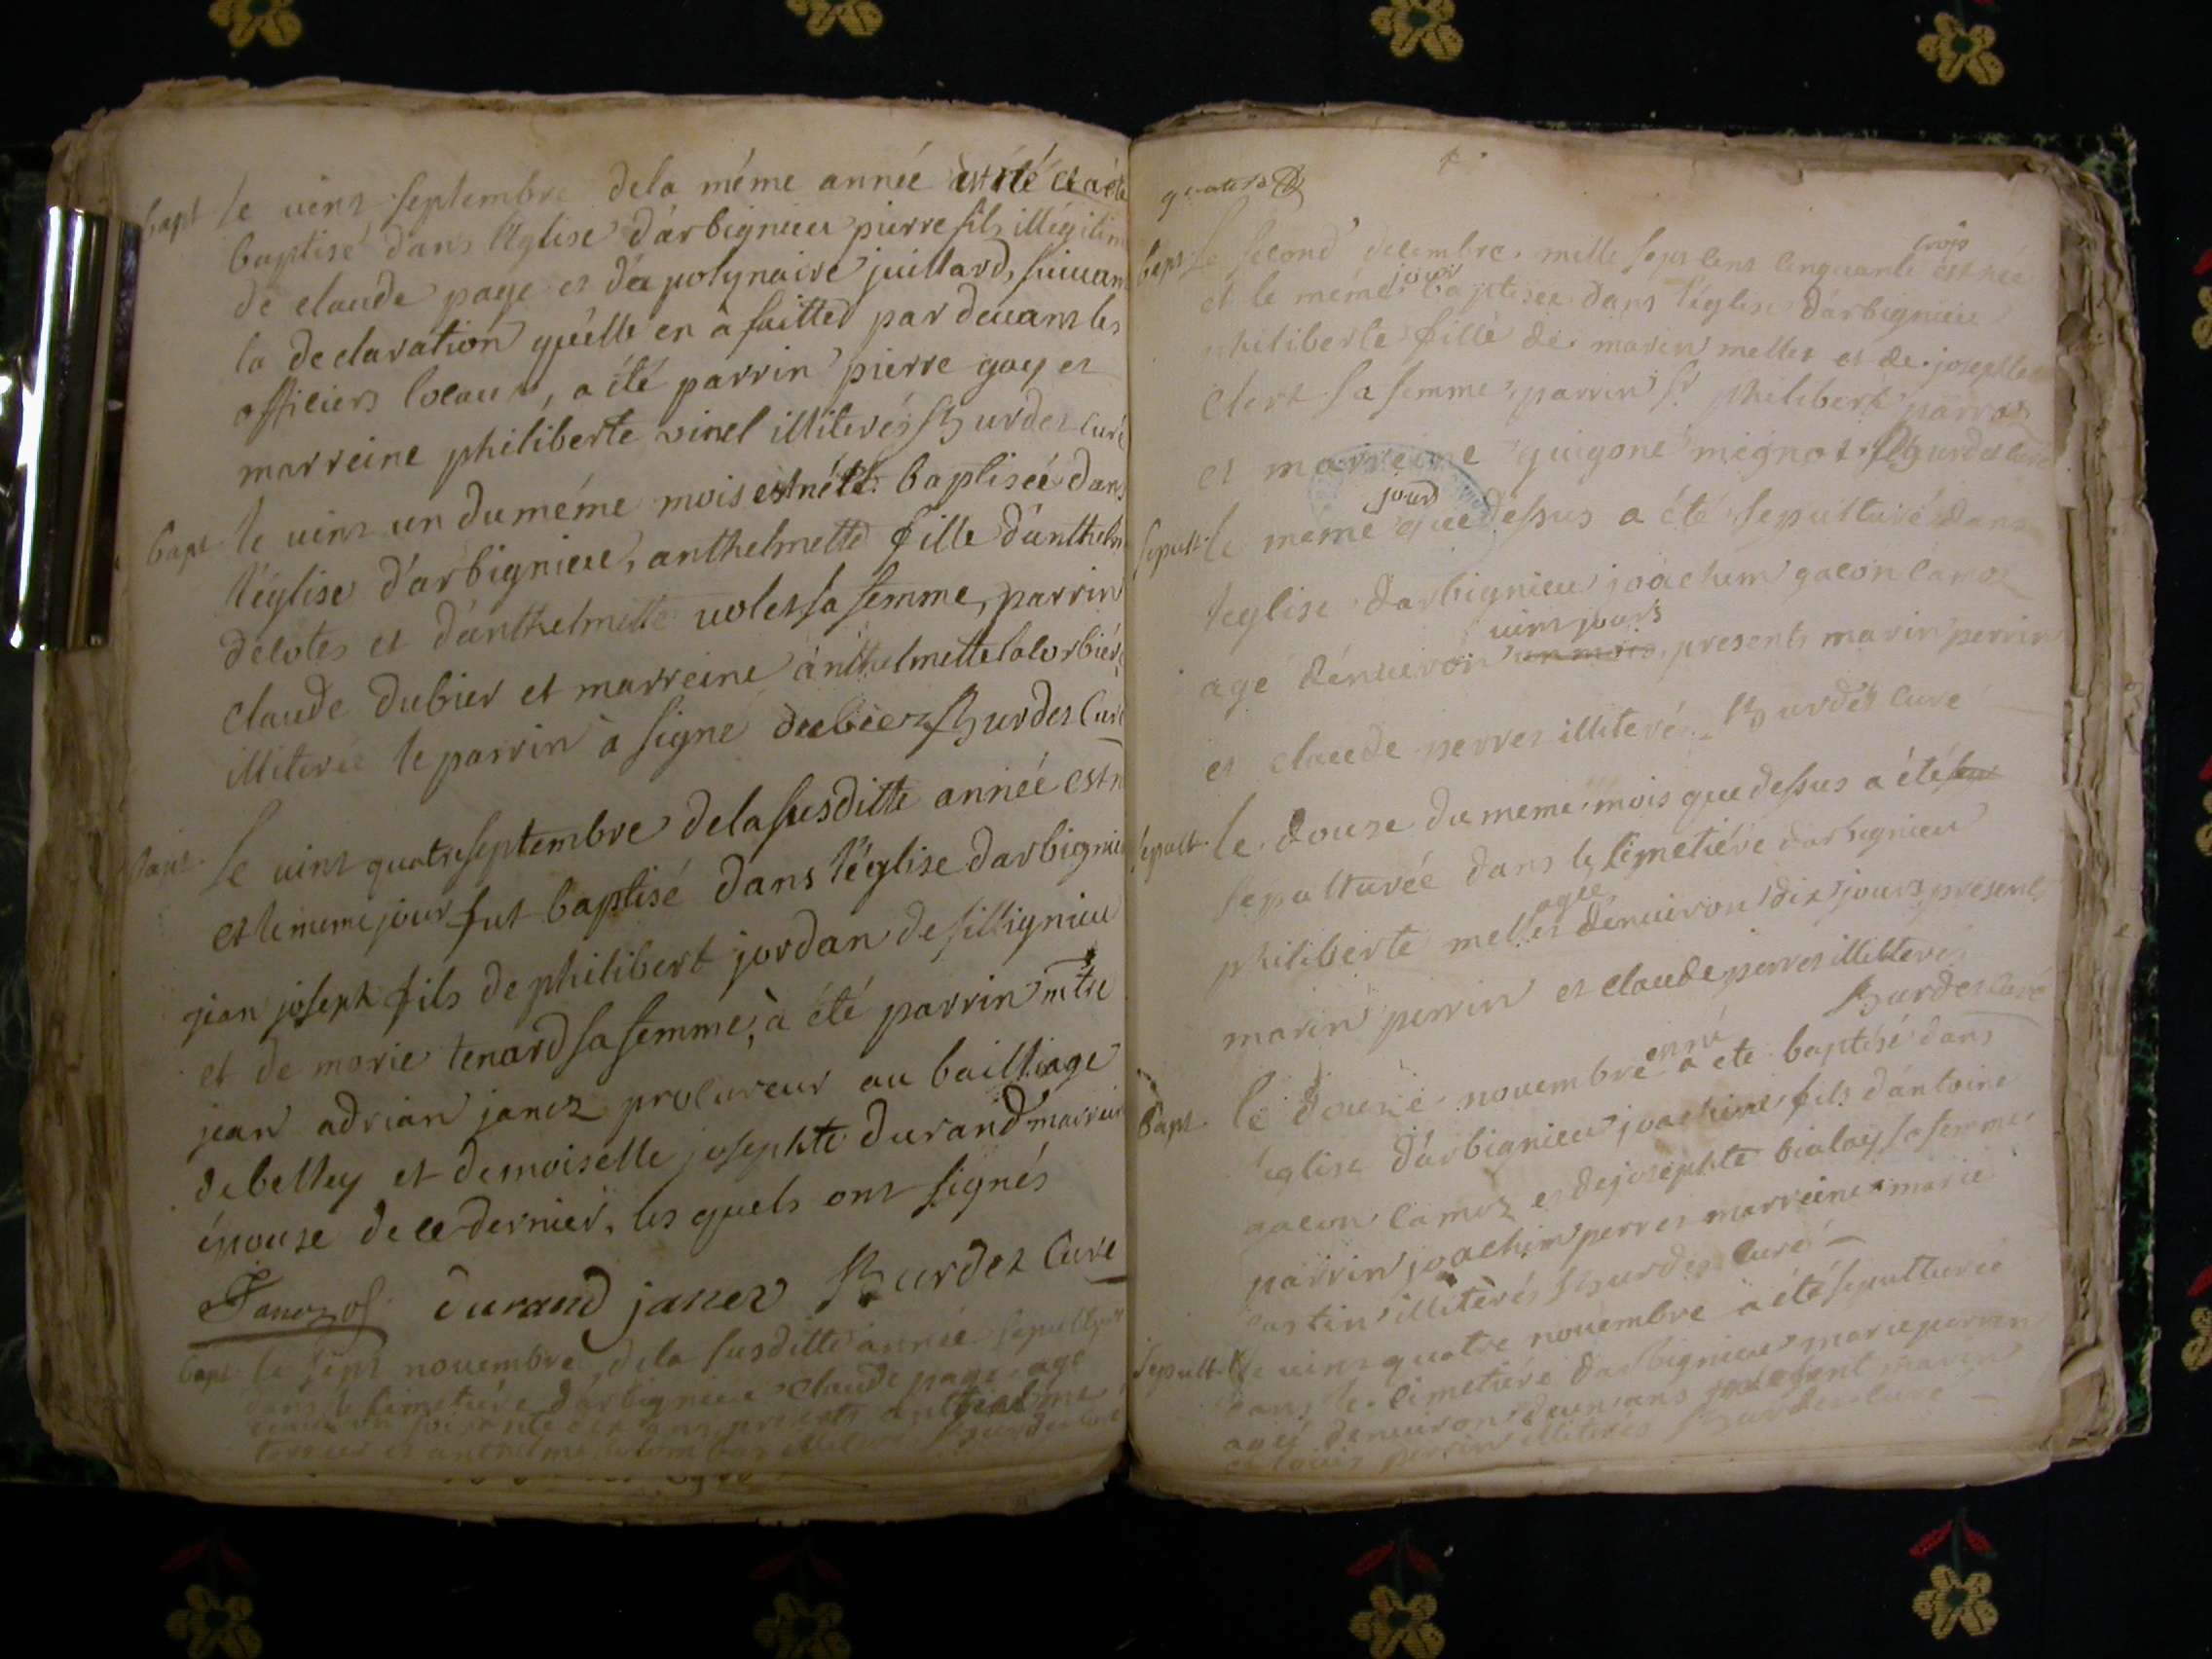 bapt le vint septembre dela méme année est né et a été
baptisé dans l'église d'arbignieu pierre fils illégitim
de claude page et d'apolynaire juillard, suivan
la declaration qu'elle en à faitte par devant les
officiers locaux, a été parrin pierre gay et
marreine philiberte vinel illiterés Burdet curé
bapt le vint un du méme mois est né et baptisée dans
l'église d'arbignieu, anthelmette fille d'anthelm
decotes et d'anthelmette volet sa femme, parrin
claude dubier et marreine anthelmette lalorbiére
illiterée le parrin à signe dubier Burdet Curé
bapt le vint quatre septembre dela susditte année est n
et le meme jour fut baptisé dans l'église d'arbignieu
jean joseph fils de philibert jordan de sillignieu
et de marie tenard sa femme, à été parrin mtre
jean adrian janez procureur au bailliage
de belley et demoiselle josephte durand marrein
épouse de ce dernier, les quels ont signés
durand janez Burdet Curé
bapt le sept novembre, dela susditte année sepulture
dans le simetiére d'arbignieu claude page agé
presents anthelme
et anthelme Burdet curé
bapt le second decembre mille sept cent cinquante trois est née
et le méme jour baptisée dans l'église d'arbignieu
philiberte fille de marin mellet et de josephte
clert sa femme, parrin sr philibert parrat
et marreine guigone mignot Burdet curé
sepult le méme jour que dessus a été sepulturé dans
l'eglise d'arbignieu joachim gacon camoz
agé d'enuiron vint jours un mois, presents marin perrin
et claude perret illiterés Burdet curé
sepult le douze du meme mois que dessus a été
sepulturée dans le simetiére d'arbignieu
philiberte mellet agée d'enuiron dix jours presents
marin perrin et claude perret illiterés
Burdet curé
bapt le douze novembre est né a ete baptisé dans
église d'arbignieu joachim fils d'antoine
gacon camoz et de josephte bialay sa femme
parrin joachim perret marreine marie
illiterés Burdet curé
sepult le vint quatre novembre a été sepulturée
dans le cimetiére d'arbignieu marie perrin
agée d'enuiron deux ans present marin
et louis perrin illiterés Burdet curé